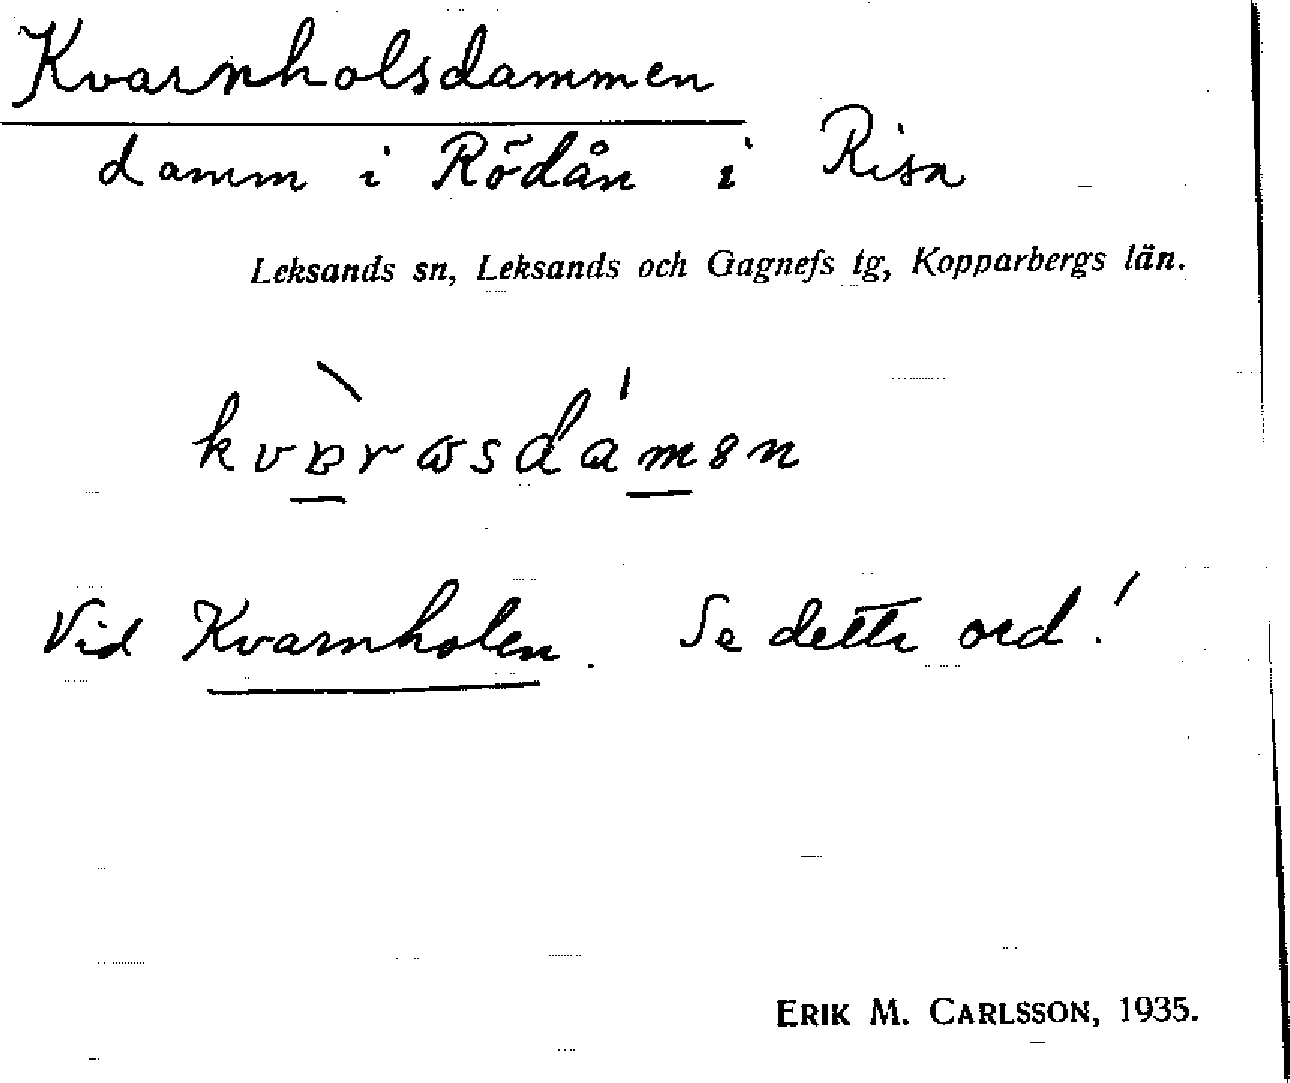 Kvarnholsdammen
damm i Rödån i Risa
Leksands sn, Leksands och Gagnefs tg, Kopparbergs län.
Vid Kvarnholen. Se detta ord!
ERIK M. CARLSSON, 1935.